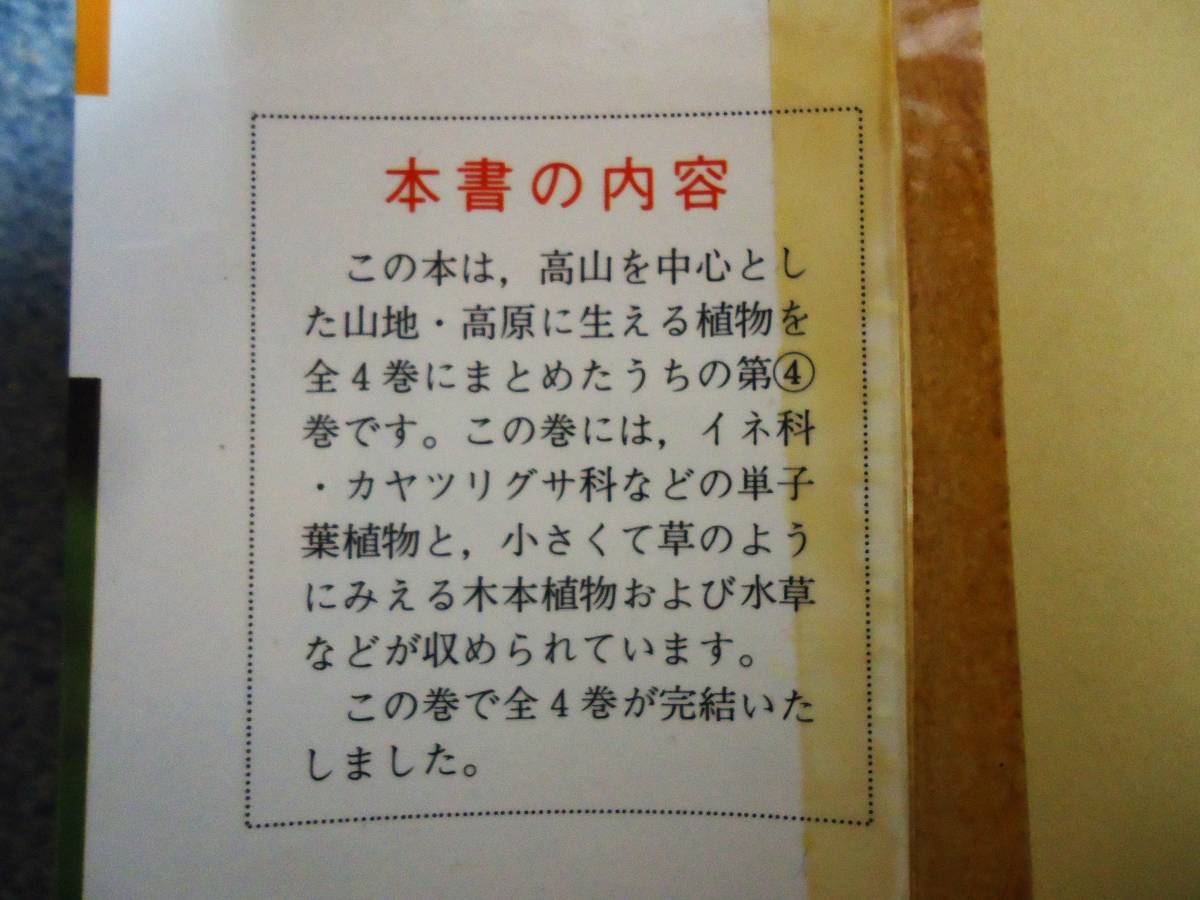 本書の内容
この本は，高山を中心とし
た山地・高原に生える植物を
全4巻にまとめたうちの第④
巻です。この巻には，イネ科
・カヤツリグサ科などの単子
葉植物と，小さくて草のよう
にみえる木本植物および水草
などが収められています。
この巻で全4巻が完結いた
しました。